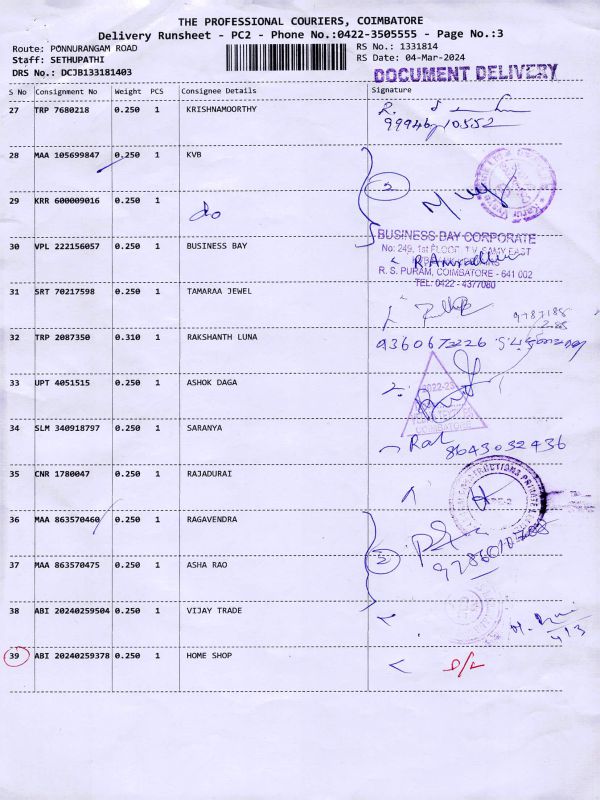 THE PROFESSIONAL COURIERS, COIMBATORE
Delivery Runsheet - PC2 - Phone No.:0422-3505555 - Page No.:3
Route: PONNURANGAM ROAD
Staff: SETHUPATHI
DRS No.: DCJB133181403
RS No.: 1331814
RS Date: 04-Mar-2024
DOCUMENT DELIVERY
S No Consignment No Weight PCS Consignee Details Signature
27 TRP 7680218 0.250 1 KRISHNAMOORTHY
9994610552
28 MAA 105699847 0.250 1 KVB
2
29 KRR 600009016 0.250 1 do
30 VPL 222156057 0.250 1 BUSINESS BAY
BUSINESS BAY CORPORATE
No: 249, 1st FLOOR, T.V. SAMY EAST
R. S. PURAM, COIMBATORE - 641 002
TEL: 0422 - 4377080
31 SRT 70217598 0.250 1 TAMARAA JEWEL
32 TRP 2087350 0.310 1 RAKSHANTH LUNA
9360673226
33 UPT 4051515 0.250 1 ASHOK DAGA
2022-23
COIMBATORE
34 SLM 340918797 0.250 1 SARANYA
8643032436
35 CNR 1780047 0.250 1 RAJADURAI
36 MAA 863570460 0.250 1 RAGAVENDRA
37 MAA 863570475 0.250 1 ASHA RAO
2
38 ABI 20240259504 0.250 1 VIJAY TRADE
4/3
39 ABI 20240259378 0.250 1 HOME SHOP
D/L